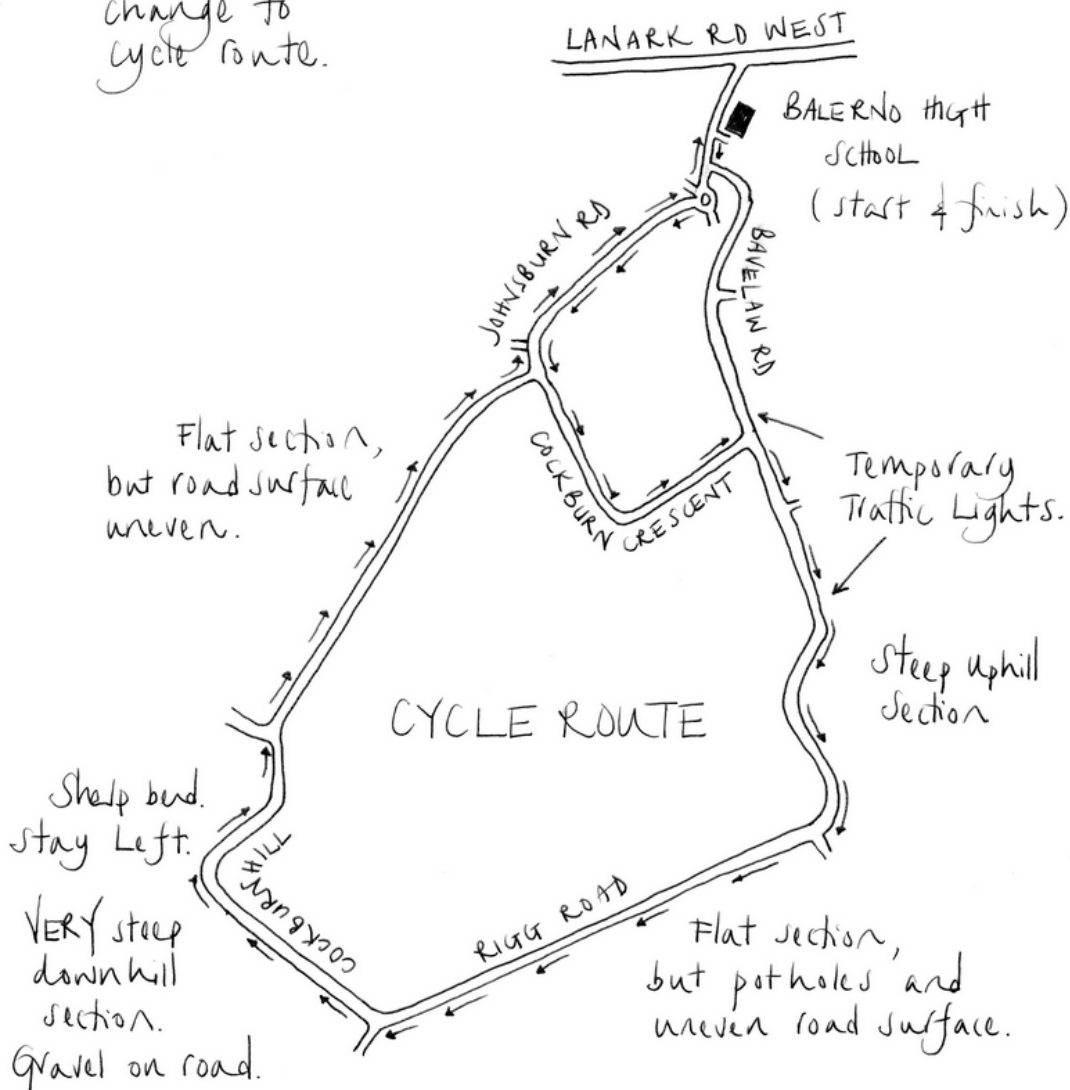 change to
cycle route.
LANARK RD WEST
BALERNO HIGH
SCHOOL
(start & finish)
JOHNSBURN RD
BAVELAW RD
Flat section,
but road surface
uneven.
COCKBURN CRESCENT
Temporary
Traffic Lights.
Steep uphill
section
CYCLE ROUTE
Sharp bend.
Stay Left.
COCKBURN HILL
VERY steep
downhill
section.
Gravel on road.
RIGG ROAD
Flat section,
but potholes and
uneven road surface.